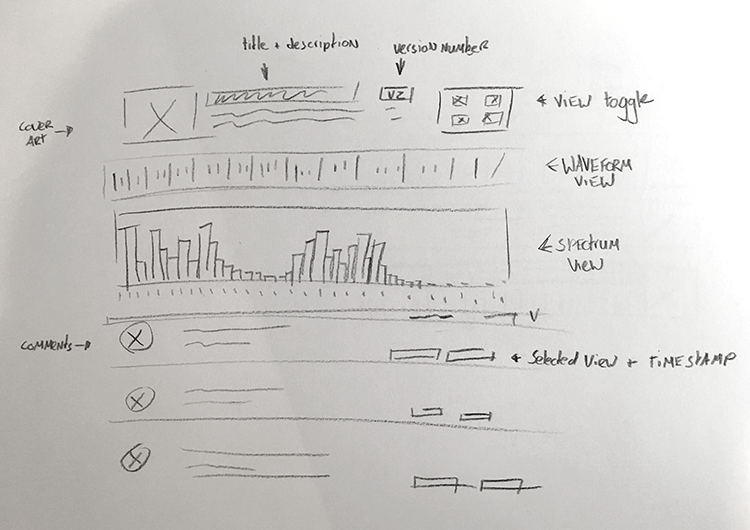 title + description
version number
V2
VIEW toggle
COVER
ART
WAVEFORM
VIEW
SPECTRUM
View
V
COMMENTS
Selected View + TIMESTAMP